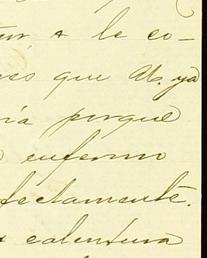 a le co-
que Ab. ya
porque
enfermo
fectamente.
calentura